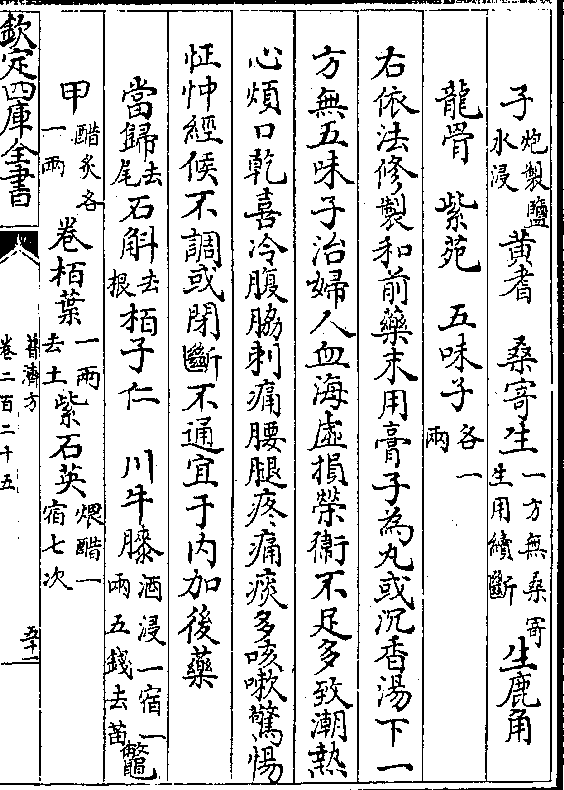 子炮製鹽水浸 黃耆 桑寄生一方無桑寄生用續斷 生鹿角
龍骨 紫苑 五味子各一兩
右依法修製和前藥末用膏子為丸或沉香湯下一
方無五味子治婦人血海虛損榮衞不足多致潮熱
心煩口乾喜冷腹脇刺痛腰腿疼痛痰多咳嗽驚惕
怔忡經候不調或閉斷不通宜于内加後藥
當歸去尾 石斛去根 栢子仁 川牛膝酒浸一宿一兩五錢去苗 鼈
甲醋炙各一兩 卷栢葉一兩去土 紫石英煨醋一宿七次
欽定四庫全書
普濟方
卷二百二十五
五十一